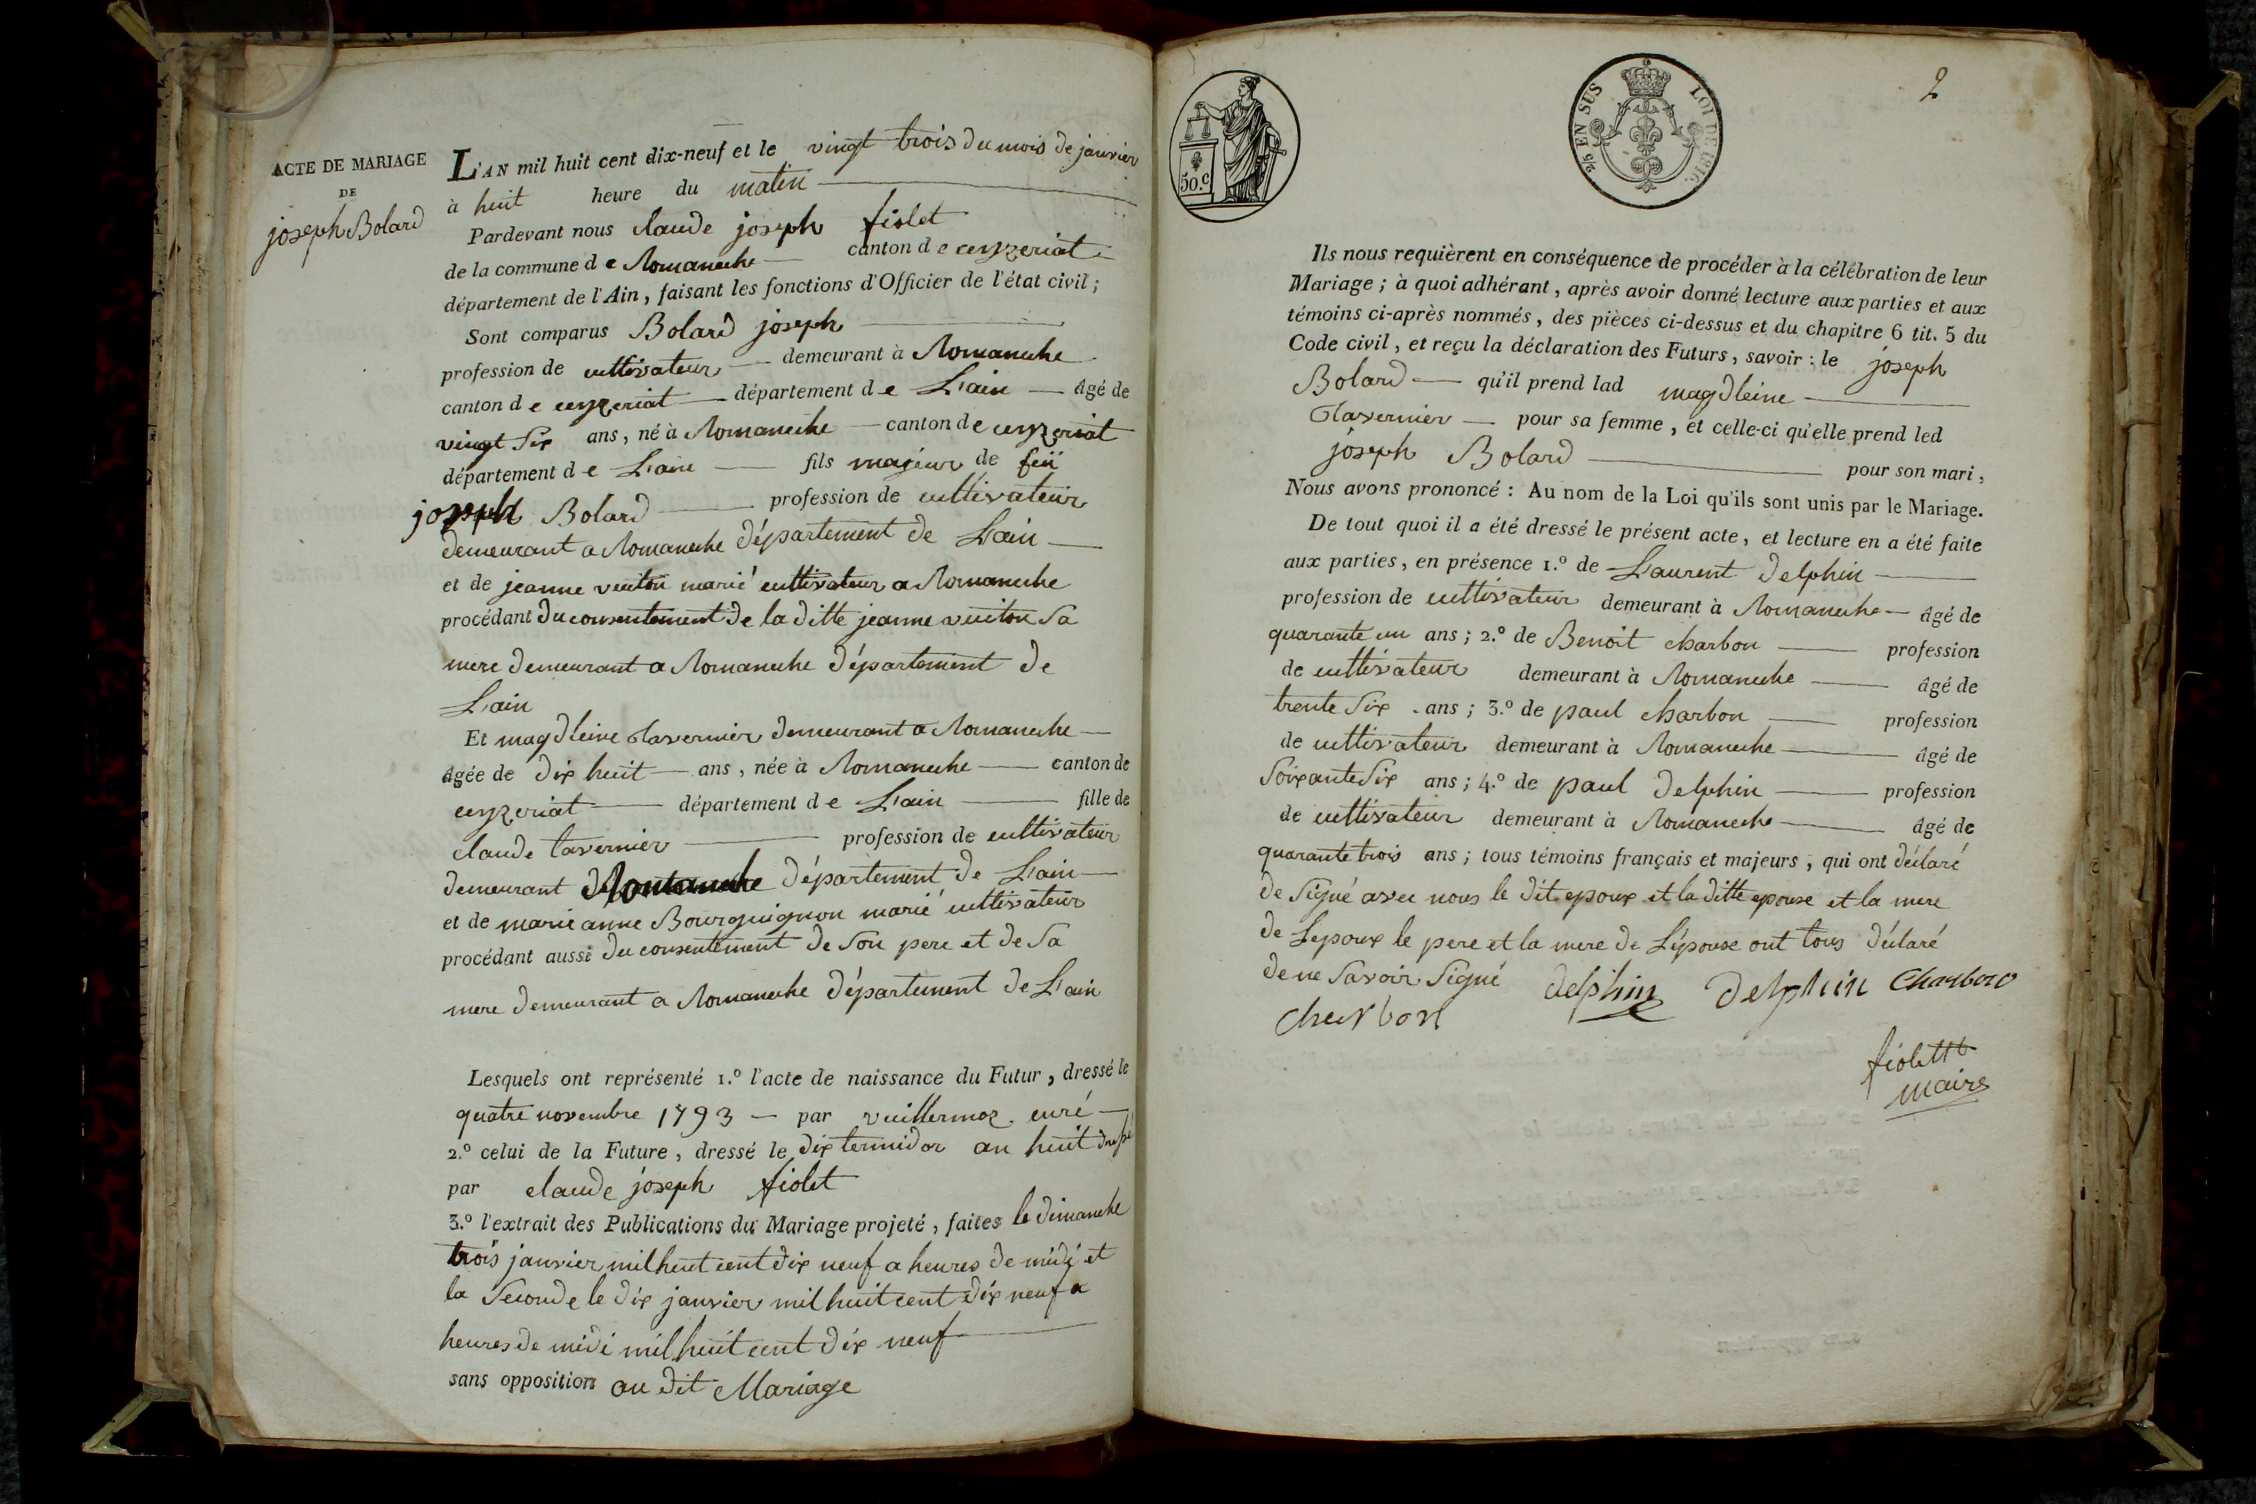 ACTE DE MARIAGE
DE
joseph Bolard
L'AN mil huit cent dix-neuf et le vingt trois du mois de janvier
à huit heure du matin
Pardevant nous claude joseph fiolet
de la commune de Romaneche canton de ceyzeriat
département de l'Ain, faisant les fonctions d'Officier de l'état civil;
Sont comparus Bolard joseph
profession de cultivateur demeurant à Romaneche
canton de ceyzeriat département de L'ain âgé de
vingt six ans, né à Romaneche canton de ceyzeriat
département de L'ain fils majeur de feü
joseph Bolard profession de cultivateur
demeurant a Romaneche département de L'ain
et de jeanne marié cultivateur a Romaneche
procédant du consentement de la ditte jeanne sa
mere demeurant a Romaneche département de
L'ain
Et magdleine Tavernier demeurant a Romaneche
âgée de dix huit ans, née à Romaneche canton de
ceyzeriat département de L'ain fille de
claude tavernier profession de cultivateur
demeurant Romaneche département de L'ain
et de marie anne Bourguignon marié cultivateur
procédant aussi du consentement de son pere et de sa
mere demeurant a Romaneche département de L'ain
Lesquels ont représenté 1.º l'acte de naissance du Futur, dressé le
quatre novembre 1793 par vuillermoz curé
2.º celui de la Future, dressé le dix termidor an huit dressé
par claude joseph fiolet
3.º l'extrait des Publications du Mariage projeté, faites le dimanche
trois janvier mil huit cent dix neuf a heures de midi et
la seconde le dix janvier mil huit cent dix neuf a
heures de midi mil huit cent dix neuf
sans opposition au dit Mariage
50.c
2/5 EN SUS LOI DE 1816.
2
Ils nous requièrent en conséquence de procéder à la célébration de leur
Mariage; à quoi adhérant, après avoir donné lecture aux parties et aux
témoins ci-après nommés, des pièces ci-dessus et du chapitre 6 tit. 5 du
Code civil, et reçu la déclaration des Futurs, savoir: le joseph
Bolard qu'il prend lad magdleine
Tavernier pour sa femme, et celle-ci qu'elle prend led
joseph Bolard pour son mari,
Nous avons prononcé: Au nom de la Loi qu'ils sont unis par le Mariage.
De tout quoi il a été dressé le présent acte, et lecture en a été faite
aux parties, en présence 1.º de Laurent delphin
profession de cultivateur demeurant à Romaneche âgé de
quarante un ans; 2.º de Benoit charbon profession
de cultivateur demeurant à Romaneche âgé de
trente six ans; 3.º de paul charbon profession
de cultivateur demeurant à Romaneche âgé de
soixante six ans; 4.º de paul delphin profession
de cultivateur demeurant à Romaneche âgé de
quarante trois ans; tous témoins français et majeurs, qui ont déclaré
de signé avec nous le dit epoux et la ditte epouse et la mere
de L'epoux le pere et la mere de L'épouse ont tous déclaré
de ne savoir signé delphin Delphin Charbon
charbon
fiolett
maire